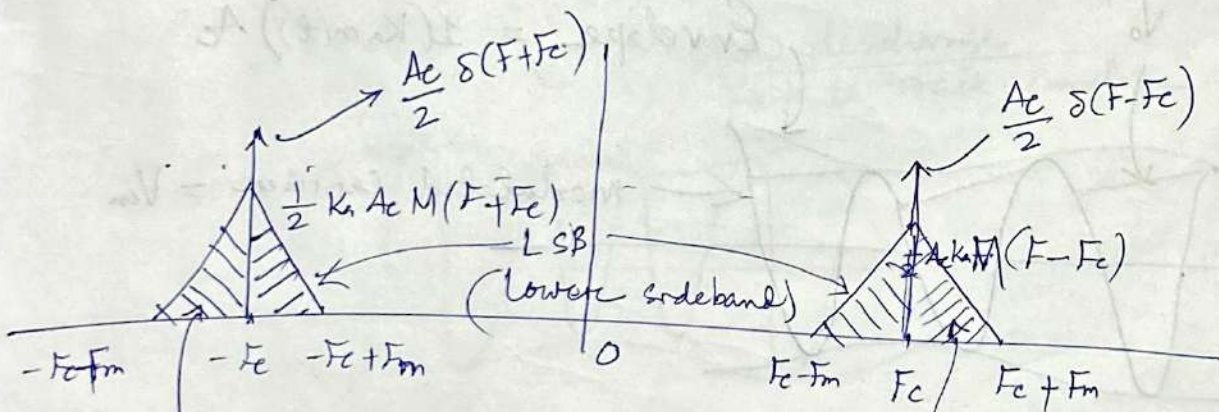 Ac/2 δ(F+Fc)
Ac/2 δ(F-Fc)
1/2 Ka Ac M(F+Fc)
LSB
(Lower sideband)
M(F-Fc)
-Fc-Fm
-Fc
-Fc+Fm
0
Fc-Fm
Fc
Fc+Fm